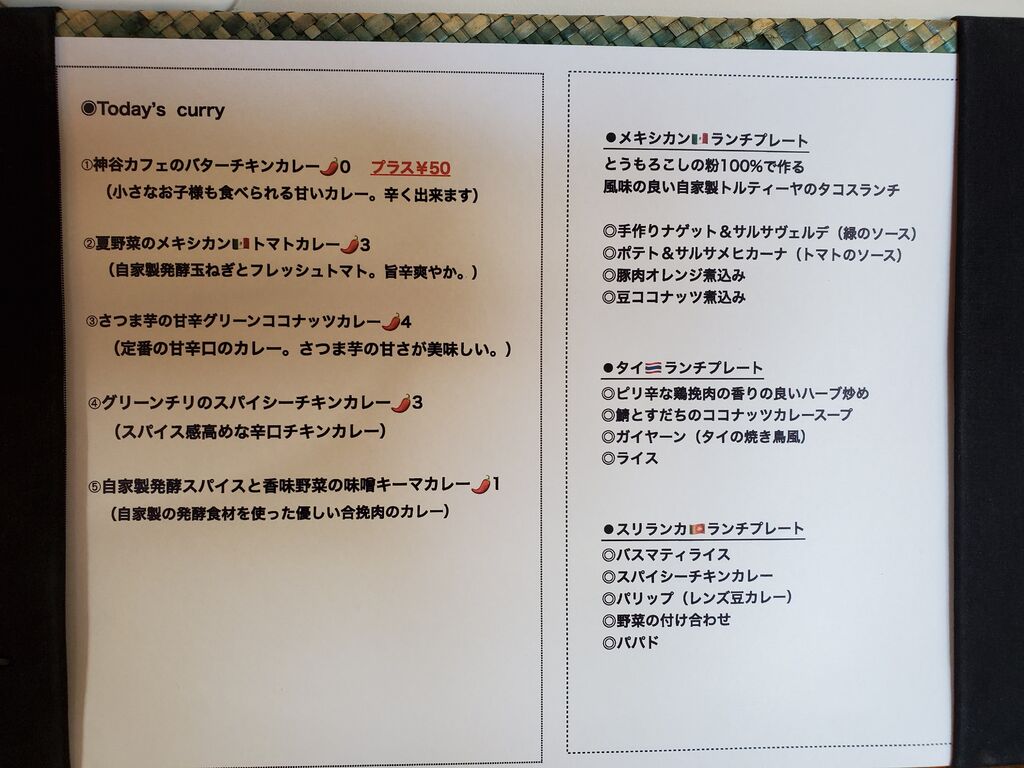 ◉Today's curry
①神谷カフェのバターチキンカレー🌶️0 プラス¥50
（小さなお子様も食べられる甘いカレー。辛く出来ます）
②夏野菜のメキシカン🇲🇽トマトカレー🌶️3
（自家製発酵玉ねぎとフレッシュトマト。旨辛爽やか。）
③さつま芋の甘辛グリーンココナッツカレー🌶️4
（定番の甘辛口のカレー。さつま芋の甘さが美味しい。）
④グリーンチリのスパイシーチキンカレー🌶️3
（スパイス感高めな辛口チキンカレー）
⑤自家製発酵スパイスと香味野菜の味噌キーマカレー🌶️1
（自家製の発酵食材を使った優しい合挽肉のカレー）
●メキシカン🇲🇽ランチプレート
とうもろこしの粉100%で作る
風味の良い自家製トルティーヤのタコスランチ
◎手作りナゲット＆サルサヴェルデ（緑のソース）
◎ポテト＆サルサメヒカーナ（トマトのソース）
◎豚肉オレンジ煮込み
◎豆ココナッツ煮込み
●タイ🇹🇭ランチプレート
◎ピリ辛な鶏挽肉の香りの良いハーブ炒め
◎鯖とすだちのココナッツカレースープ
◎ガイヤーン（タイの焼き鳥風）
◎ライス
●スリランカ🇱🇰ランチプレート
◎バスマティライス
◎スパイシーチキンカレー
◎パリップ（レンズ豆カレー）
◎野菜の付け合わせ
◎パパド